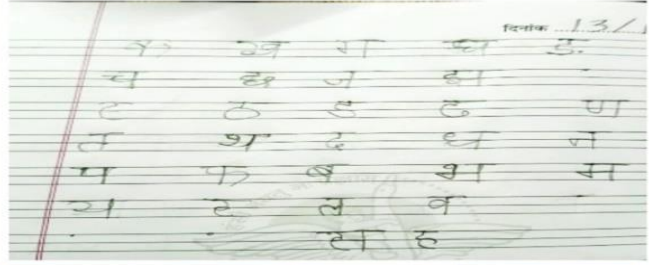 दिनांक 13/
क ख ग घ ङ
च छ ज झ .
ट ठ ड ढ ण
त थ द ध न
प फ ब भ म
य ट ल व
. . स ह